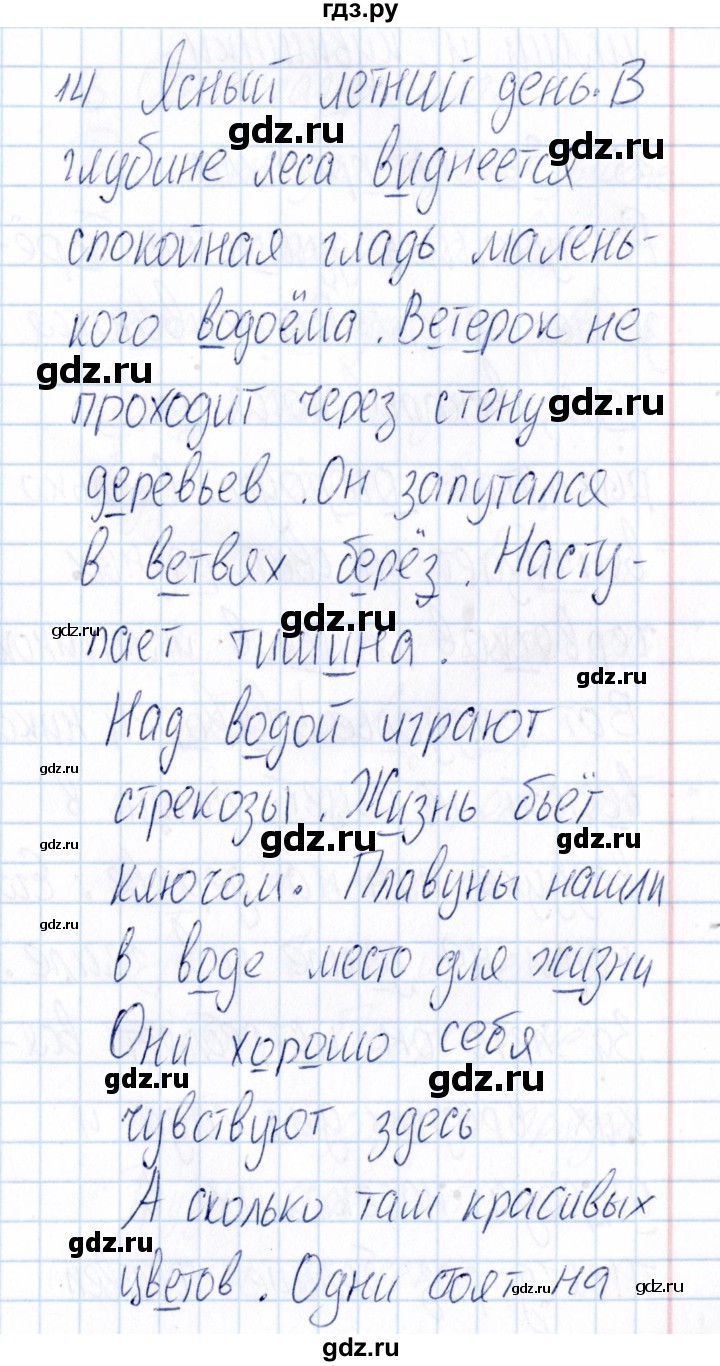 гдз.ру
14 Ясный летний день. В
gdz.ru
глубине леса виднеется
gdz.ru
спокойная гладь малень-
кого водоёма. Ветерок не
gdz.ru
проходит через стену
gdz.ru
деревьев. Он запутался
в ветвях берёз. Насту-
gdz.ru
gdz.ru
пает тишина.
gdz.ru
Над водой играют
gdz.ru
стрекозы. Жизнь бьёт
gdz.ru
gdz.ru
gdz.ru
ключом. Плавуны нашли
gdz.ru
в воде место для жизни
Они хорошо себя
gdz.ru
gdz.ru
чувствуют здесь
А сколько там красивых
gdz.ru
цветов. Одни стоят на
gdz.ru
gdz.ru
gdz.ru